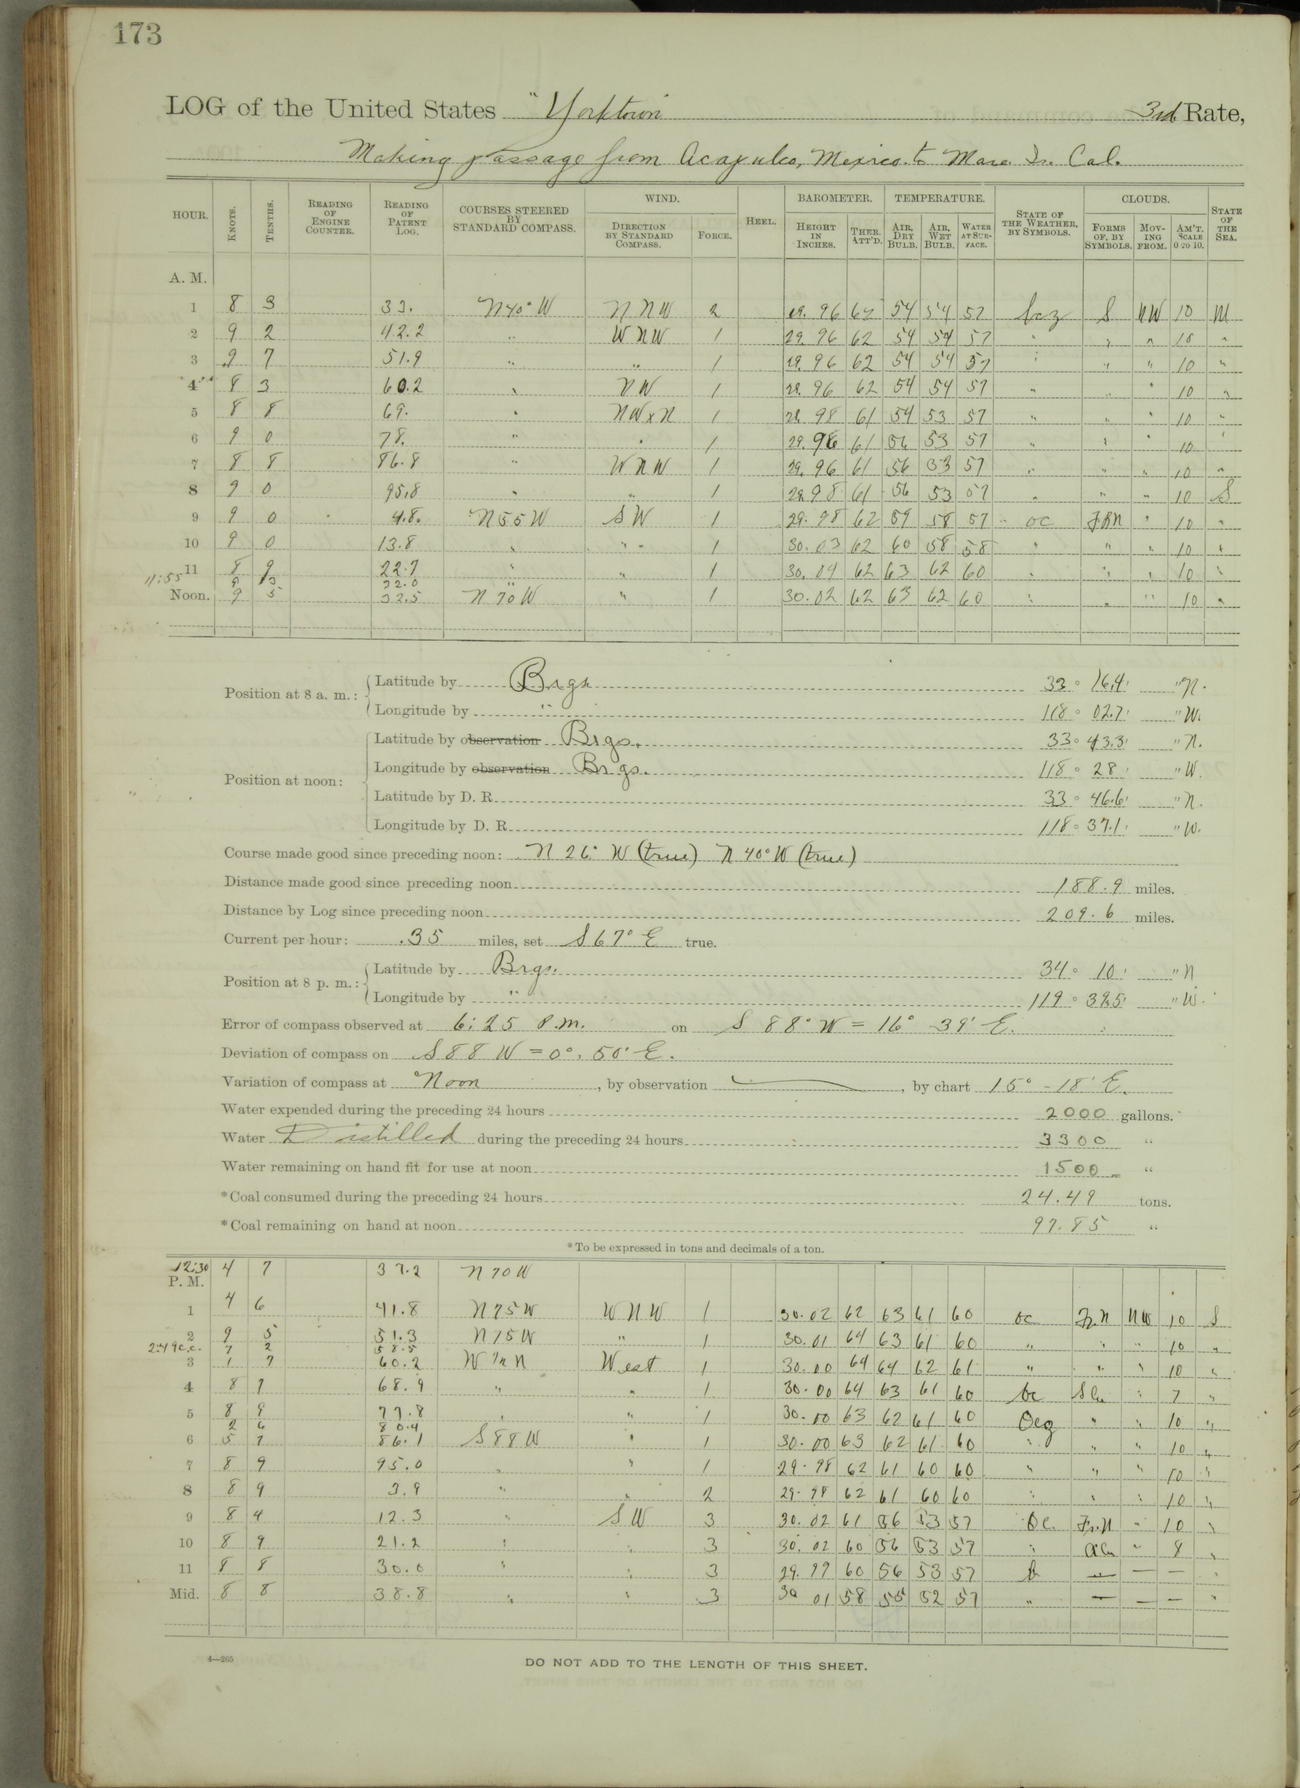 173
LOG of the United States "Yorktown" 3rd Rate,
Making passage from Acapulco, Mexico. to Mare Is. Cal.
HOUR. KNOTS. TENTHS. READING OF ENGINE COUNTER. READING OF PATENT LOG. COURSES STEERED BY STANDARD COMPASS. WIND. DIRECTION BY STANDARD COMPASS. FORCE. HEEL. BAROMETER. HEIGHT IN INCHES. THER. ATT'D. TEMPERATURE. AIR, DRY BULB. AIR, WET BULB. WATER AT SURFACE. STATE OF THE WEATHER, BY SYMBOLS. CLOUDS. FORMS OF, BY SYMBOLS. MOVING FROM. AM'T. SCALE 0 TO 10. STATE OF THE SEA.
A. M.
1 8 3 33. N40°W NNW 2 29.96 62 54 54 57 S NW 10 M
2 9 2 42.2 " WNW 1 29.96 62 54 54 57 " " " 10 "
3 9 7 51.9 " 1 29.96 62 54 54 57 " " " 10 "
4 8 3 60.2 " NW 1 29.96 62 54 54 57 " " " 10 "
5 8 8 69. " NWxN 1 29.98 61 54 53 57 " " " 10 "
6 9 0 78. " " 1 29.98 61 56 53 57 " " " 10 "
7 8 8 86.8 " WNW 1 29.96 61 56 53 57 " " " 10 "
8 9 0 95.8 " " 1 29.98 61 56 53 57 " " " 10 S
9 9 0 4.8. N55W SW 1 29.98 62 59 58 57 oc " 10 "
10 9 0 13.8 " " 1 30.03 62 60 58 58 " " " 10 "
11 8 9 22.7 " " 1 30.04 62 63 62 60 " " " 10 "
11:55 9 3 32.0 "
Noon. 9 5 32.5 N70W " 1 30.02 62 63 62 60 " " " 10 "
Position at 8 a. m.: Latitude by Brgs 33° 16.4' " N.
Longitude by " 118° 02.7' " W.
Position at noon: Latitude by observation Brgs. 33° 43.3' " N.
Longitude by observation Brgs. 118° 28' " W.
Latitude by D. R. 33° 46.6' " N.
Longitude by D. R. 118° 37.1' " W.
Course made good since preceding noon: N 26° W (true) N 40° W (true)
Distance made good since preceding noon 188.9 miles.
Distance by Log since preceding noon 209.6 miles.
Current per hour: .35 miles, set S 67° E true.
Position at 8 p. m.: Latitude by Brgs. 34° 10' " N
Longitude by " 119° " W.
Error of compass observed at 6:25 P.m. on S 88° W = 16° 39' E.
Deviation of compass on S 88 W = 0°, 50' E.
Variation of compass at Noon , by observation , by chart 15° - 18' E.
Water expended during the preceding 24 hours 2000 gallons.
Water Distilled during the preceding 24 hours 3300 "
Water remaining on hand fit for use at noon 1500 "
*Coal consumed during the preceding 24 hours 24.49 tons.
*Coal remaining on hand at noon 97.85 "
*To be expressed in tons and decimals of a ton.
12:30 4 7 37.2 N70W
P. M.
1 4 6 41.8 N75W WNW 1 30.02 62 63 61 60 oc Fr.N NW 10 S
2 9 5 51.3 N75W " 1 30.01 64 63 61 60 " " " 10 "
2:49 c.c. 7 2 58.5
3 1 7 60.2 West 1 30.00 64 64 62 61 " " " 10 "
4 8 7 68.9 " " 1 30.00 64 63 61 60 bc 7 "
5 8 9 77.8 " " 1 30.00 63 62 61 60 Ocg " " 10 "
2 6 80.4
6 5 7 86.1 S88W " 1 30.00 63 62 61 60 " " " 10 "
7 8 9 95.0 " " 1 29.98 62 61 60 60 " " " 10 "
8 8 9 3.9 " " 2 29.98 62 61 60 60 " " " 10 "
9 8 4 12.3 " SW 3 30.02 61 56 53 57 Oc. Fr.N " 10 "
10 8 9 21.2 " " 3 30.02 60 56 53 57 " " 8 "
11 8 8 30.0 " " 3 29.99 60 56 53 57 b — — — "
Mid. 8 8 38.8 " " 3 30 01 58 55 52 57 " — — — "
4—265
DO NOT ADD TO THE LENGTH OF THIS SHEET.